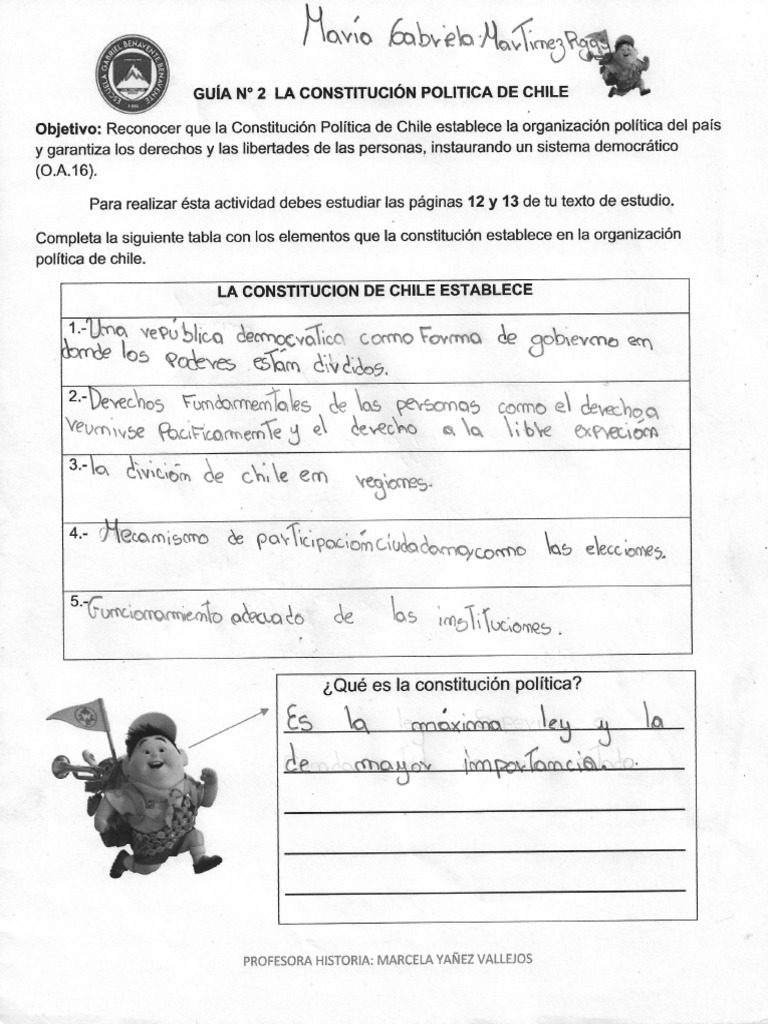 María Gabriela Martinez
ESCUELA GABRIEL BENAVENTE BENAVENTE
GUÍA N° 2 LA CONSTITUCIÓN POLITICA DE CHILE
Objetivo: Reconocer que la Constitución Política de Chile establece la organización política del país
y garantiza los derechos y las libertades de las personas, instaurando un sistema democrático
(O.A.16).
Para realizar ésta actividad debes estudiar las páginas 12 y 13 de tu texto de estudio.
Completa la siguiente tabla con los elementos que la constitución establece en la organización
política de chile.
LA CONSTITUCION DE CHILE ESTABLECE
1.-Una república democratica como Forma de gobierno en
donde los poderes están divididos.
2.-Derechos Fundamentales de las personas como el derecho a
reunirse Pacificamente y el derecho a la libre expreción
3.-la divición de chile en regiones.
4.- Mecanismo de participación ciudadana, como las elecciones.
5.-Funcionamiento adecuado de las instituciones.
¿Qué es la constitución política?
Es la máxima ley y la
de mayor importancia.
PROFESORA HISTORIA: MARCELA YAÑEZ VALLEJOS